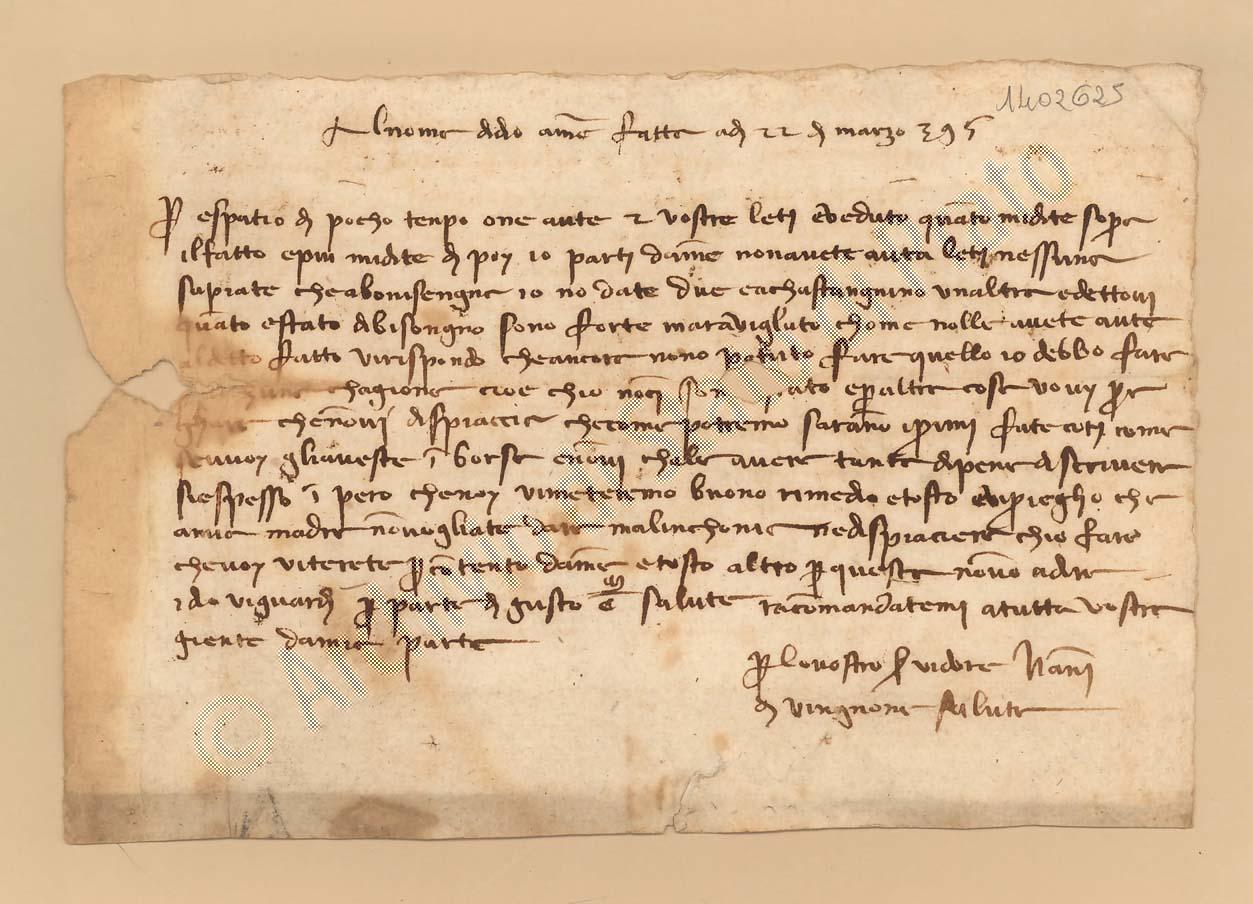 1402625
Al nome didio ame fatta adi 22 di marzo 395
P espatio di pocho tenpo one aute 2 vostre leti eveduto quato midite sopra
ilfatto epiu midite di poy io parti dame nonavete auta leti nessuna
sapiate cheabonisengna io no date due eachastangnino unaltra edettovi
quato estato dibisongno sono forte maraviglato chome nolle avete aute
fatto virispondo cheancora nono potuto fare quello io debbo fare
chagione cioe chio noci son ato epaltre cose
chenovi dispiaccia checome potremo sarano iprimi fate coti come
gliaveste i borsa enovi chala avere tanta dipena discrivere
siespesso i pero chenoy vimetteremo buono rimedio etosto evipriegho che
amia madre novogliate dare malinchonia nedispiacere chio faro
chenoy viterete p contento dame etosto altro p questa nono adire
idio viguardi p parte di gusto salute racomandatemi atutta vostra
giente damia parte
p lovostro servidore Nani
di vingnone salute
© Archivio di Stato Prato